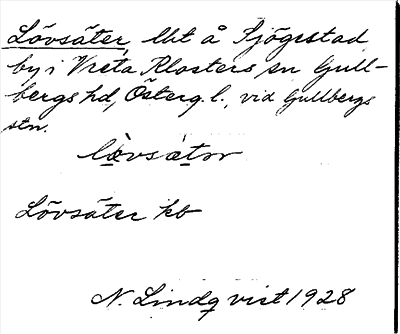 Lövsäter, lht å Sjögestad
by i Vreta Klosters sn Gull-
bergs hd, Österg. l., vid Gullbergs
stn.
lövsætər
Lövsäter kb
N. Lindqvist 1928